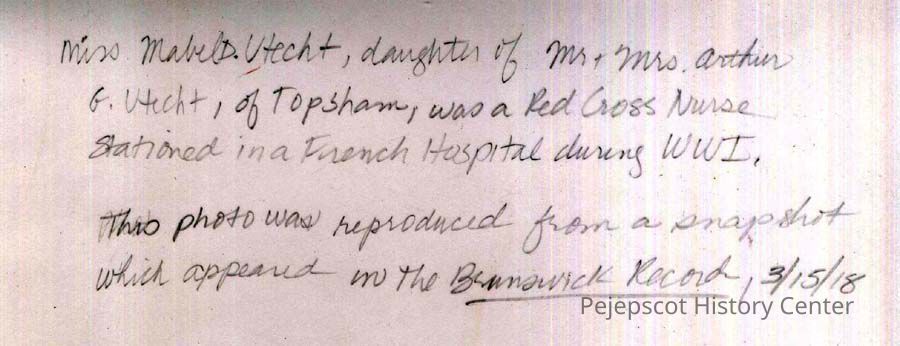 Miss Mabel D. Utecht, daughter of Mr + Mrs. Arthur
G. Utecht, of Topsham, was a Red Cross Nurse
Stationed in a French Hospital during WWI.
This photo was reproduced from a snapshot
which appeared in the Brunswick Record, 3/15/18
Pejepscot History Center